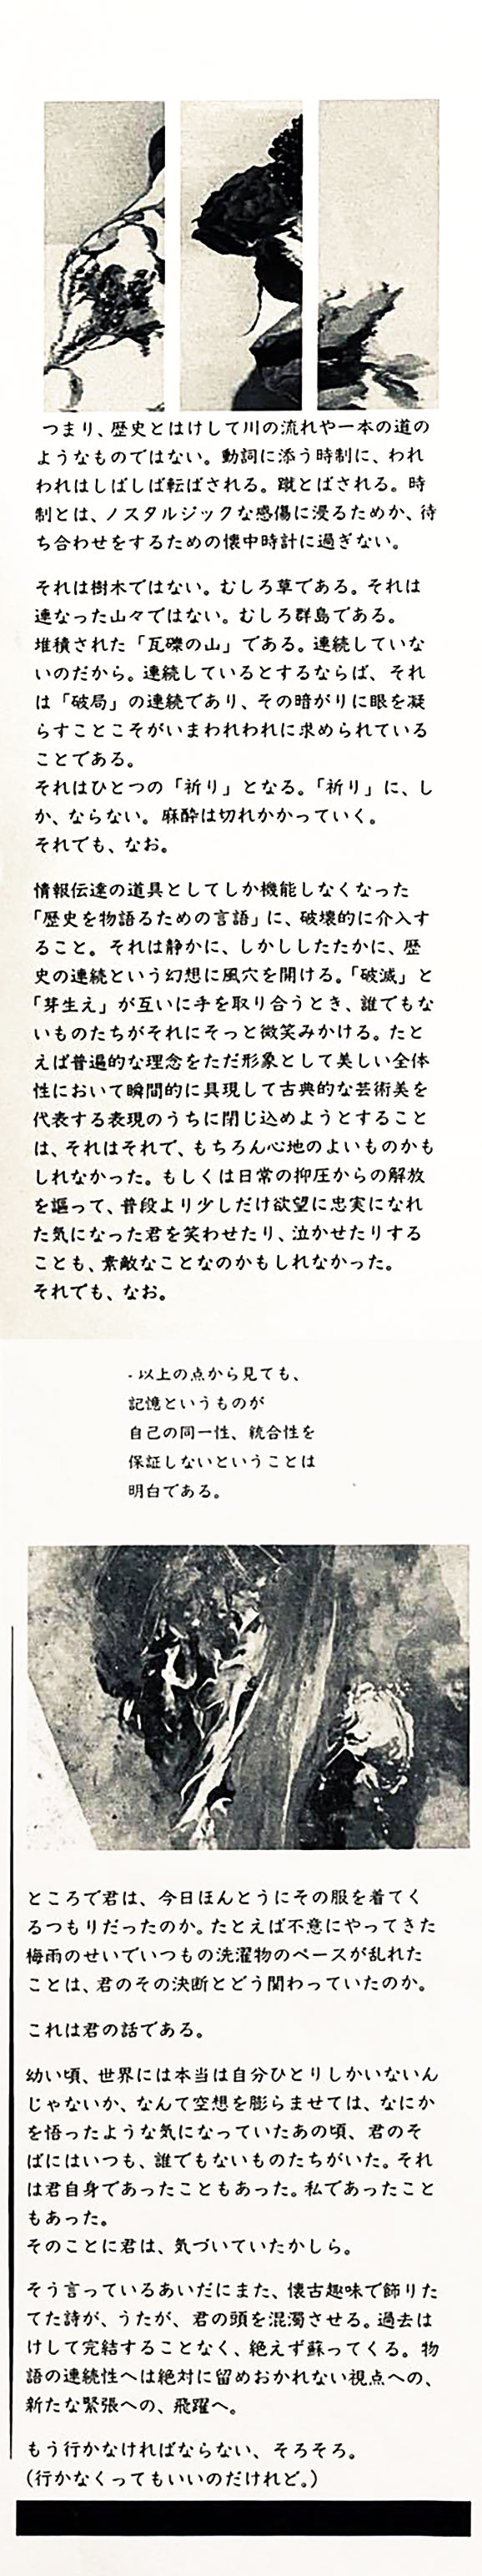 つまり、歴史とはけして川の流れや一本の道の
ようなものではない。動詞に添う時制に、われ
われはしばしば転ばされる。蹴とばされる。時
制とは、ノスタルジックな感傷に浸るためか、待
ち合わせをするための懐中時計に過ぎない。
それは樹木ではない。むしろ草である。それは
連なった山々ではない。むしろ群島である。
堆積された「瓦礫の山」である。連続していな
いのだから。連続しているとするならば、それ
は「破局」の連続であり、その暗がりに眼を凝
らすことこそがいまわれわれに求められている
ことである。
それはひとつの「祈り」となる。「祈り」に、し
か、ならない。麻酔は切れかかっていく。
それでも、なお。
情報伝達の道具としてしか機能しなくなった
「歴史を物語るための言語」に、破壊的に介入す
ること。それは静かに、しかししたたかに、歴
史の連続という幻想に風穴を開ける。「破滅」と
「芽生え」が互いに手を取り合うとき、誰でもな
いものたちがそれにそっと微笑みかける。たと
えば普遍的な理念をただ形象として美しい全体
性において瞬間的に具現して古典的な芸術美を
代表する表現のうちに閉じ込めようとすること
は、それはそれで、もちろん心地のよいものかも
しれなかった。もしくは日常の抑圧からの解放
を謳って、普段より少しだけ欲望に忠実になれ
た気になった君を笑わせたり、泣かせたりする
ことも、素敵なことなのかもしれなかった。
それでも、なお。
- 以上の点から見ても、
記憶というものが
自己の同一性、統合性を
保証しないということは
明白である。
ところで君は、今日ほんとうにその服を着てく
るつもりだったのか。たとえば不意にやってきた
梅雨のせいでいつもの洗濯物のペースが乱れた
ことは、君のその決断とどう関わっていたのか。
これは君の話である。
幼い頃、世界には本当は自分ひとりしかいないん
じゃないか、なんて空想を膨らませては、なにか
を悟ったような気になっていたあの頃、君のそ
ばにはいつも、誰でもないものたちがいた。それ
は君自身であったこともあった。私であったこと
もあった。
そのことに君は、気づいていたかしら。
そう言っているあいだにまた、懐古趣味で飾りた
てた詩が、うたが、君の頭を混濁させる。過去は
けして完結することなく、絶えず蘇ってくる。物
語の連続性へは絶対に留めおかれない視点への、
新たな緊張への、飛躍へ。
もう行かなければならない、そろそろ。
(行かなくってもいいのだけれど。)